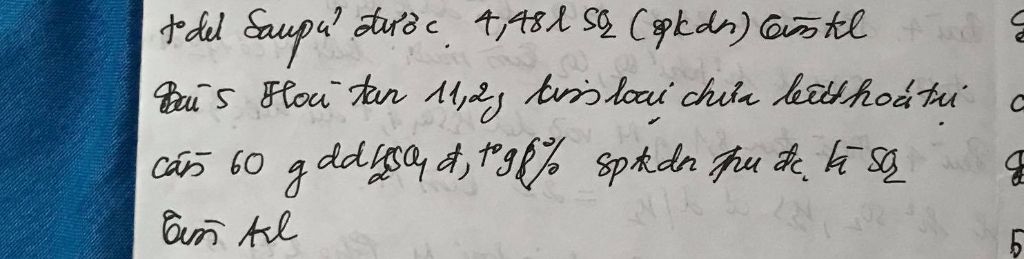 tº dư Saupứ được 4,48l SO2 (spkdn) tìm kl
Bài 5 Hoà tan 11,2g kim loại chưa biết hoá trị
cần 60 g ddH2SO4 đ, tº 98% spkdn thu đc khí SO2
Tìm kl